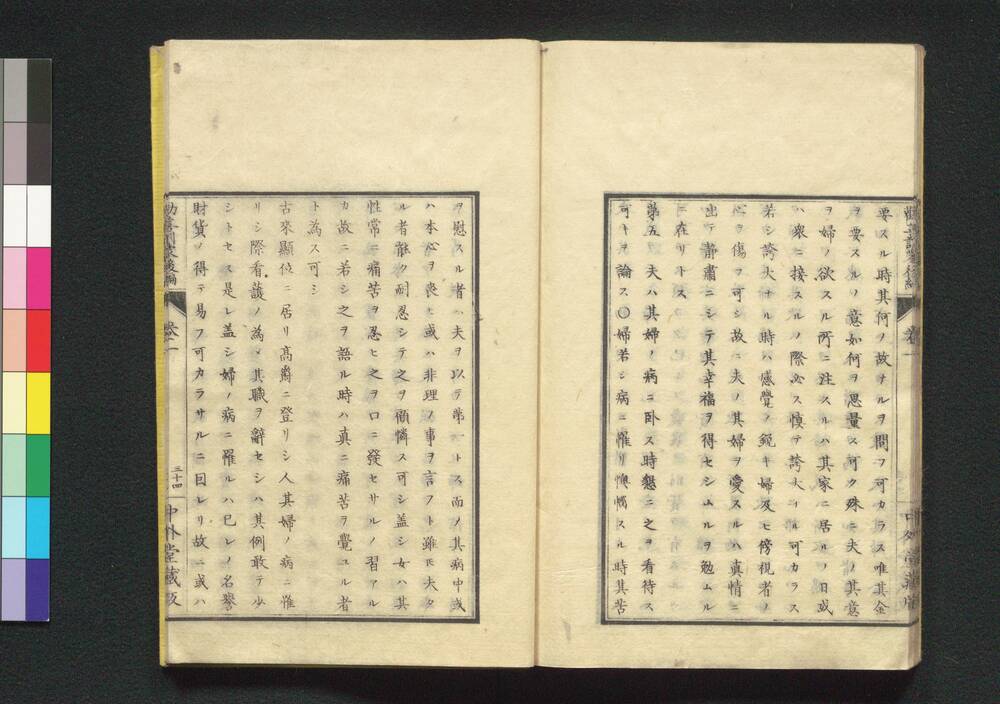 要スル時其何ノ故ナルヲ問フ可カラス唯其金
ヲ要スルノ意如何ヲ思量ス可ク殊ニ夫ノ其意
ヲ婦ノ欲スル所ニ注スルハ其家ニ居ルノ日或
ハ衆ニ接スルノ際必ス慎テ誇大ナル可カラス
若シ誇大ナル時ハ感覺ノ鋭キ婦及ヒ傍視者ノ
心ヲ傷フ可シ故ニ夫ノ其婦ヲ愛スルハ真情ニ
出テ靜肅ニシテ其幸福ヲ得セシムルヲ勉ムル
ニ在リトス
第五 夫ハ其婦ノ病ニ臥ス時懇ニ之ヲ看待ス
可キヲ論ス〇婦若シ病ニ罹リ懊惱スル時其苦
ヲ慰スル者ハ夫ヲ以テ第一トス而ノ其病中或
ハ本心ヲ喪ヒ或ハ非理ノ事ヲ言フト雖𪜈夫タ
ル者能ク耐忍シテ之ヲ顧憐ス可シ盖シ女ハ其
性常ニ痛苦ヲ忍ヒ之ヲ口ニ發セサルノ習アル
カ故ニ若シ之ヲ語ル時ハ真ニ痛苦ヲ覺ユル者
ト為ス可シ
古來顯位ニ居リ高爵ニ登リシ人其婦ノ病ニ罹
リシ際看護ノ為メ其職ヲ辭セシハ其例敢テ少
シトセス是レ盖シ婦ノ病ニ罹ルハ已レノ名譽
財貨ノ得テ易フ可カラサルニ因レリ故ニ或ハ
卷一
三十四
中外堂藏版